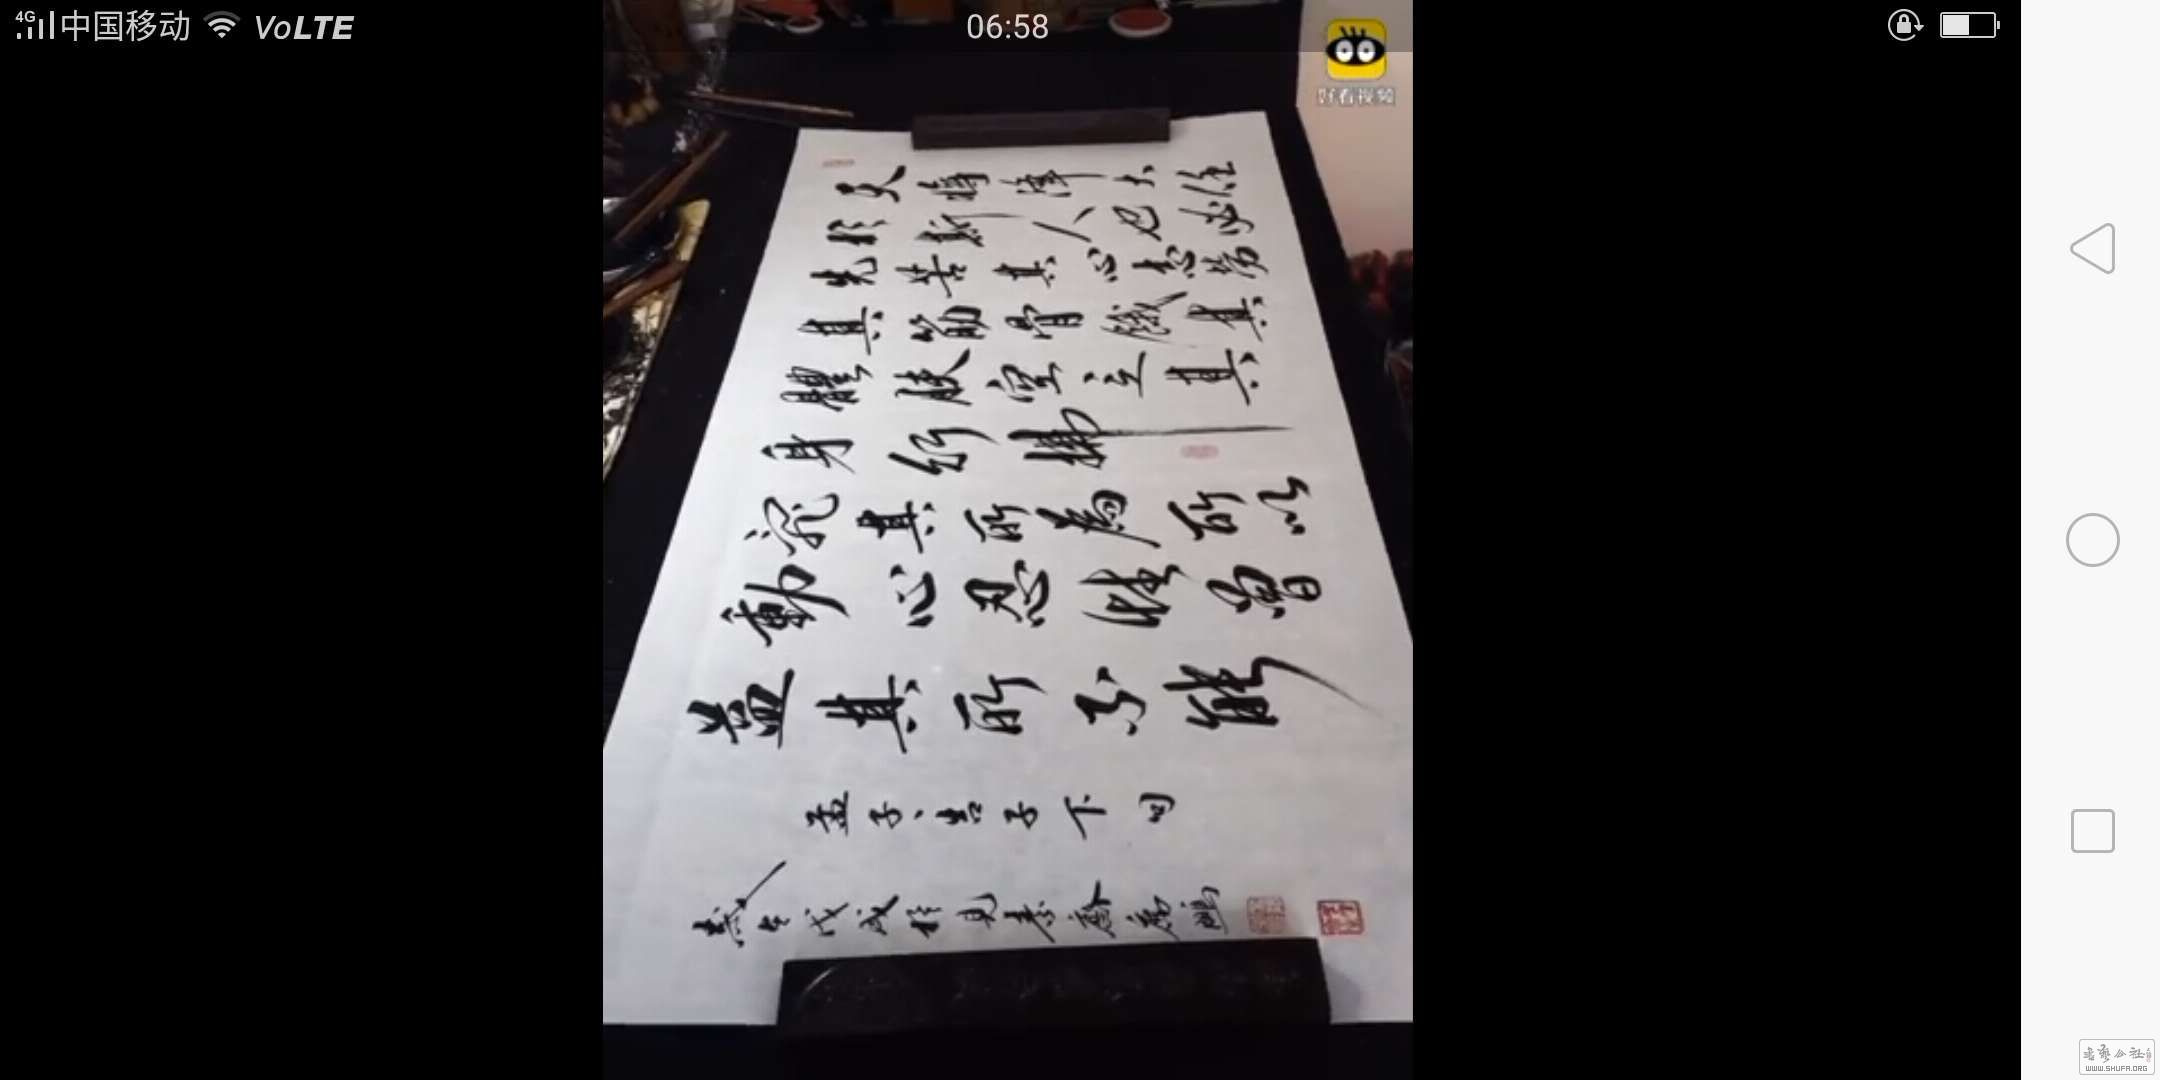 4G 中国移动 VoLTE 06:58
好看视频
天將降大任
於斯人也必
先苦其心志勞
其筋骨餓其
體肤空乏其
身行拂
乱其所為所以
動心忍性曾
益其所不能
孟子、告子下句
歲在戊戌於見素齋
WWW.SHUFA.ORG